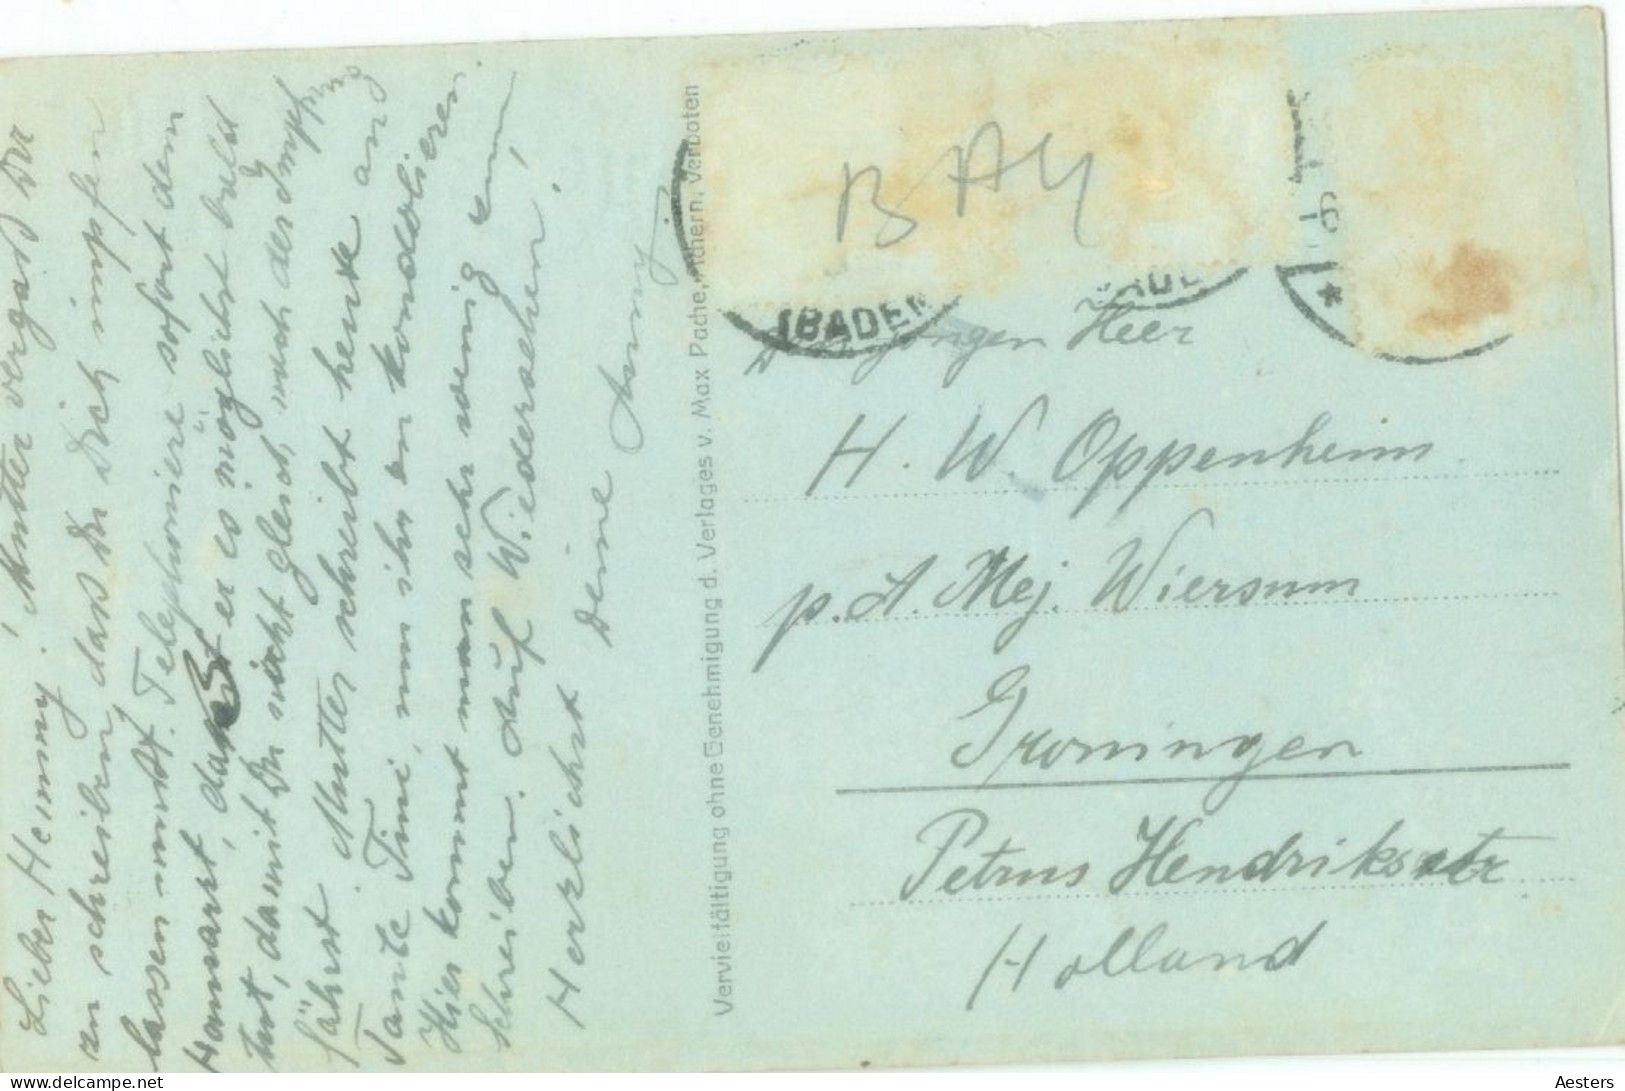 Lieber Hemmy! Mutter vergaß Dir
zu schreiben, daß Du Dich impfen
lassen mußt. Telephoniere sofort dem
Hausarzt, daß er es möglichst bald
tut, damit Du nicht gleich nach der Impfung
fährst. Mutter schreibt heute an
Tante Timi, um ihr zu kondolieren.
Hier kommt man sehr wenig zum
Schreiben. Auf Wiedersehen!
Herzlichst
Deine
Vervielfältigung ohne Genehmigung d. Verlages v. Max Pache, Achern, verboten
BAY
(BADEN
Jongen Heer
H. W. Oppenheim
p. A. Mej. Wiersum
Groningen
Petrus Hendrikstr
Holland
Aesters